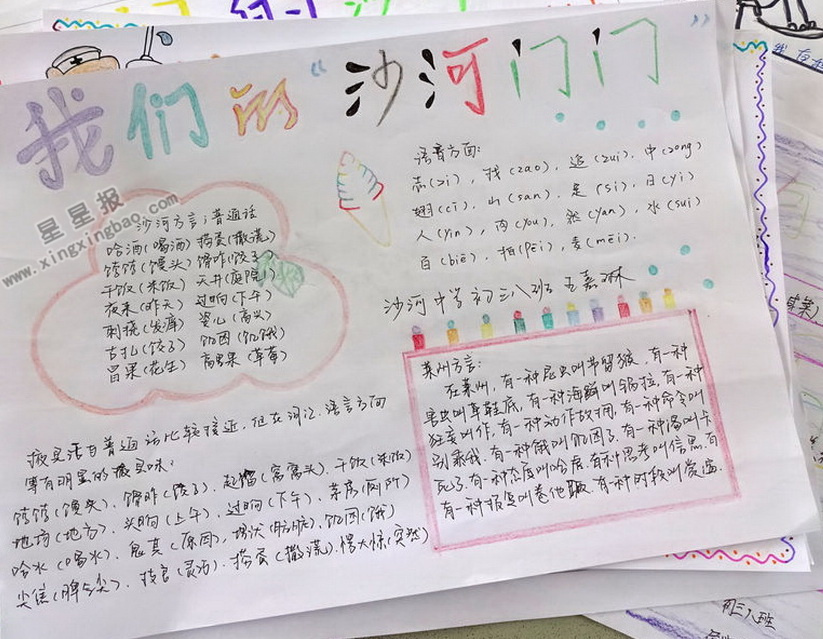 我们的“沙河门门”
沙河方言;普通话
哈酒(喝酒) 捞蛋(撒谎)
饽饽(馒头) 馉咋(饺子)
干饭(米饭) 天井(庭院)
夜来(昨天) 过晌(下午)
刺挠(发痒)
古扎(饺子) 饥困(饥饿)
昌果(花生) 高果(草莓)
语音方面:
志(zi), 找(zao), 追(zui), 中(zong)
翅(cī), 山(san), 是(si), 日(yi)
人(yin), 肉(you), 然(yan), 水(sui)
百(biē), 拍(pēi), 麦(mēi).
沙河中学 初三八班 王嘉琳
莱州方言:
在莱州,有一种昆虫叫节留猴,有一种
害虫叫草鞋底,有一种海鲜叫锅拉,有一种
狂妄叫作,有一种动作叫,有一种命令叫
别乖我,有一种饿叫饥困了,有一种渴叫卡
死了,有一种仓库叫哈房,有种思考叫信思,有
有一种报复叫卷他,有一种时段叫
掖县话和普通话比较接近,但在词汇、语言方面
带有明显的掖县味:
饽饽(馒头)、馉咋(饺子)、起溜(窝窝头)、干饭(米饭)
地场(地方)、头晌(上午)、过晌(下午)、茅房(厕所)
哈水(喝水)、(原因)、埋汰(肮脏)、饥困(饿)
尖馋(脾气尖)、(灵活)、捞蛋(撒谎)、愣大惊(突然)
初三八班
星星报
www.xingxingbao.com